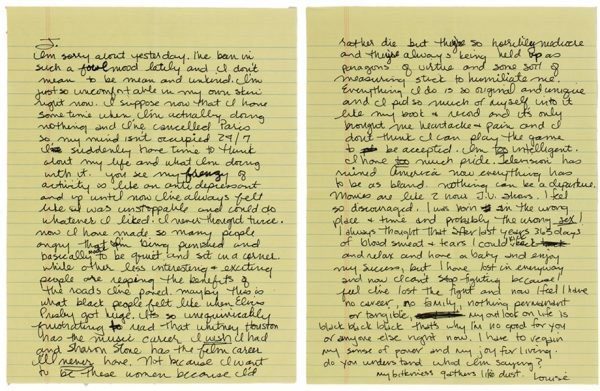 J.
I'm sorry about yesterday. I've been in
such a foul mood lately and I don't
mean to be mean and unkind. I'm
just so uncomfortable in my own skin
right now. I suppose now that I have
some time when I'm actually doing
nothing and I've cancelled Paris
so my mind isn't occupied 24/7
I suddenly have time to think
about my life and what I'm doing
with it. you see my frenzy of
activity is like an anti depressant
and up until now I've always felt
like I was unstoppable and could do
whatever I liked. I never thought twice.
now I have made so many people
angry that I'm being punished and
basically made to be quiet and sit in a corner.
while other less interesting & exciting
people are reaping the benefits of
the roads I've paved. maybe this is
what black people felt like when Elvis
Presley got huge. It's so unequivocally
frustrating to read that Whitney Houston
has the music career I wish I had
and Sharon Stone has the film career
I'll never have. Not because I want
to be these women because I'd
rather die but they're so horribly mediocre
and they're always being held up as
paragons of virtue and some sort of
measuring stick to humiliate me.
Everything I do is so original and unique
and I put so much of myself into it
like my book & record and it's only
brought me heartache & pain and I
don't think I can play the game
to be accepted. I'm too intelligent.
I have too much pride. Television has
ruined America now everything has
to be so bland. nothing can be a departure.
Movies are like 2 hour T.V. shows. I feel
so discouraged. I was born in the wrong
place & time and probably the wrong sex!
I always thought that after last years 365 days
of blood sweat & tears I could
and relax and have a baby and enjoy
my success, but I have lost in everyway
and now I can't stop fighting because
I feel I've lost the fight and now I feel I have
no career, no family, nothing permanent
or tangible, my outlook on life is
black black black that's why I'm no good for you
or anyone else right now. I have to regain
my sense of power and my joy for living.
do you understand what I'm saying?
my bitterness gathers like dust.
Louise